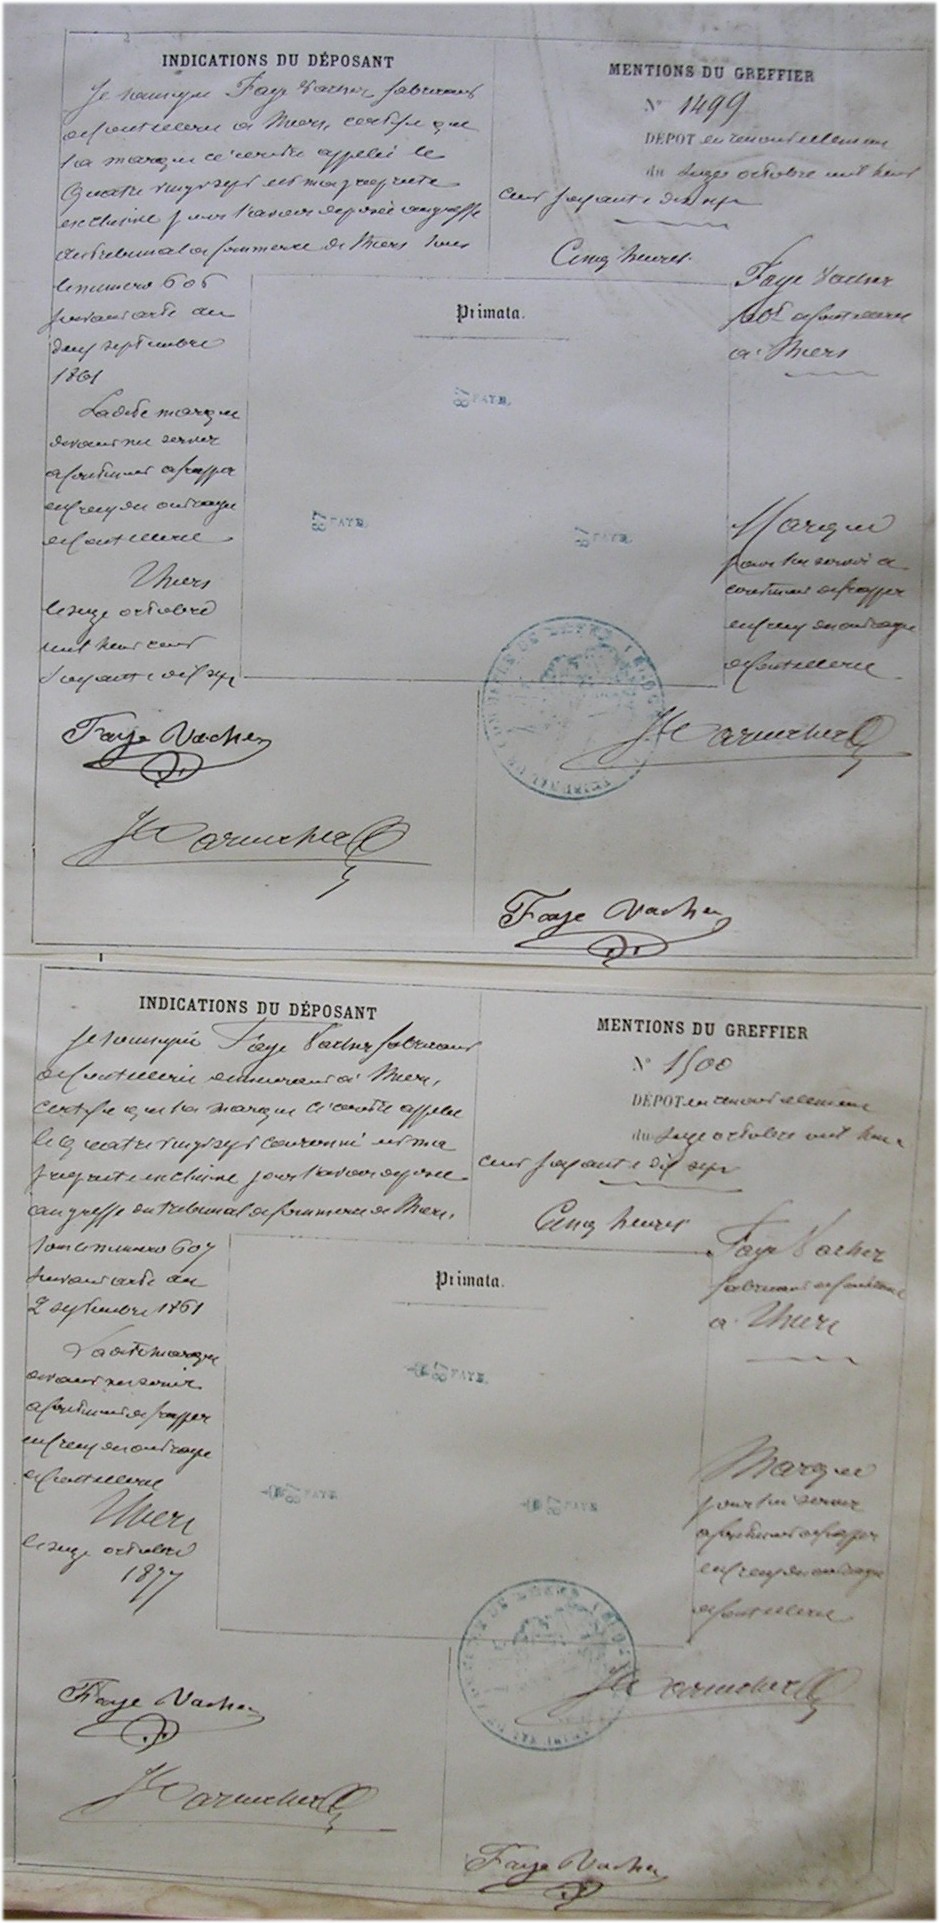 INDICATIONS DU DÉPOSANT
Je soussigné Faye Vacher fabricant
de coutellerie à Thiers, certifie que
la marque ci contre appelée le
Quatre vingt sept est ma propriété
exclusive pour l'avoir déposée au greffe
du tribunal de Commerce de Thiers sous
le numero 606
suivant acte du
deux septembre
1861
La dite marque
devant me servir
à continuer à frapper
en creux des ouvrages
de coutellerie
Thiers
le seize octobre
mil huit cent
soixante dix sept
Faye Vacher
MENTIONS DU GREFFIER
N° 1499
DÉPOT en renouvellement
du seize octobre mil huit
cent soixante dix sept
Cinq heures
Faye Vacher
fabt de coutellerie
à Thiers
Primata.
87 FAYE.
87 FAYE.
87 FAYE.
Marque
pour lui servir à
continuer de frapper
en creux des ouvrages
de coutellerie
Faye Vacher
INDICATIONS DU DÉPOSANT
Je soussigné Faye Vacher fabricant
de coutellerie demeurant à Thiers,
certifie que la marque ci contre appelée
le Quatre vingt sept couronné est ma
propriété exclusive pour l'avoir déposée
au greffe du tribunal de Commerce de Thiers,
sous le numero 607
suivant acte du
2 septembre 1861
La dite marque
devant me servir
à continuer de frapper
en creux des ouvrages
de coutellerie
Thiers
le seize octobre
1877
Faye Vacher
MENTIONS DU GREFFIER
N° 1500
DÉPOT en renouvellement
du seize octobre mil huit
cent soixante dix sept
Cinq heures
Faye Vacher
fabricant de coutellerie
à Thiers
Primata.
87 FAYE.
87 FAYE
87 FAYE
Marque
pour lui servir
à continuer de frapper
en creux des ouvrages
de coutellerie
Faye Vacher